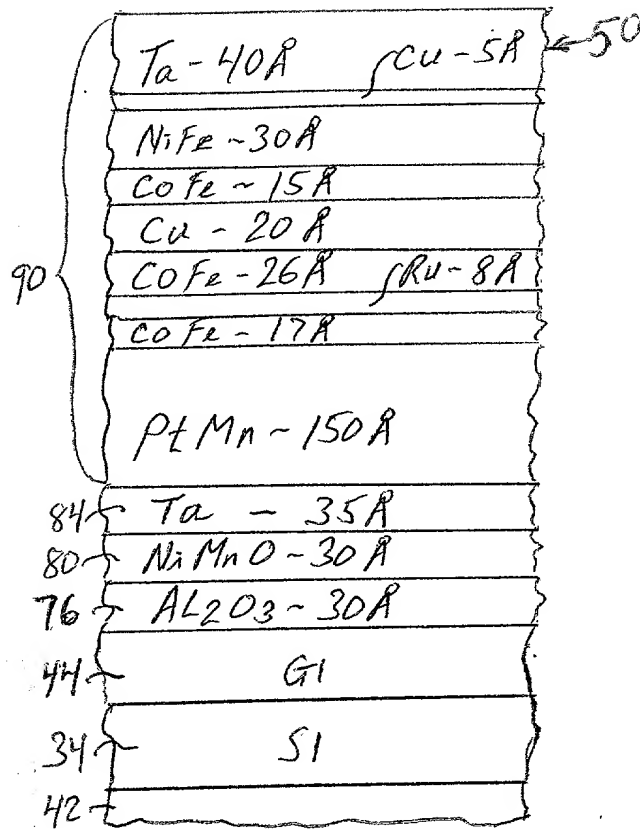 50
Ta-40Å Cu-5Å
NiFe-30Å
CoFe-15Å
Cu-20Å
90
CoFe-26Å Ru-8Å
CoFe-17Å
PtMn-150Å
84 Ta - 35Å
80 NiMnO-30Å
76 AL2O3-30Å
44 G1
34 S1
42